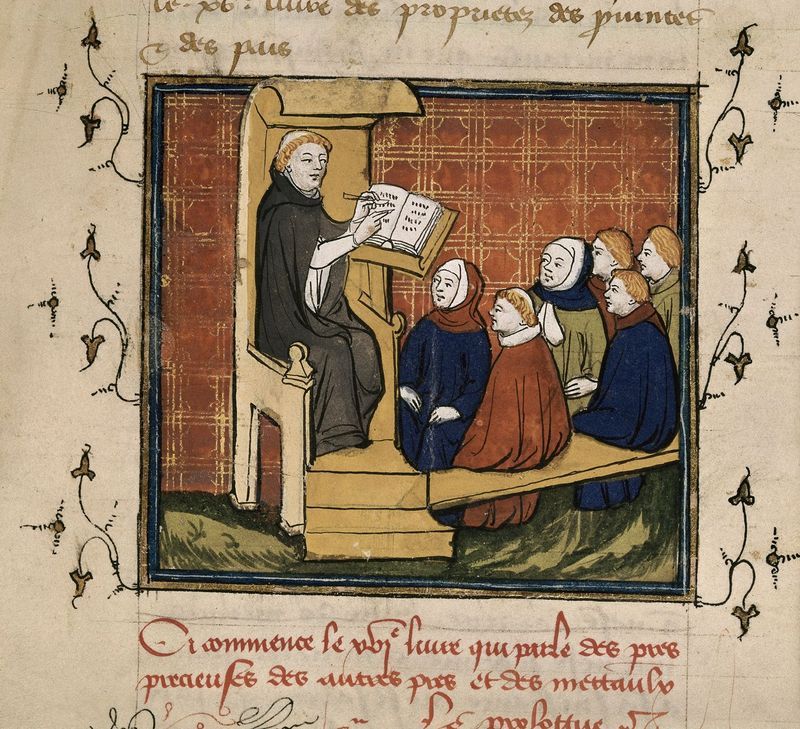 le xv. livre des proprietez des prvinces
& des pais
Ci commence le xvi.e livre qui parle des pres
precieuses des autres pres et des mettaulx
Le prologue